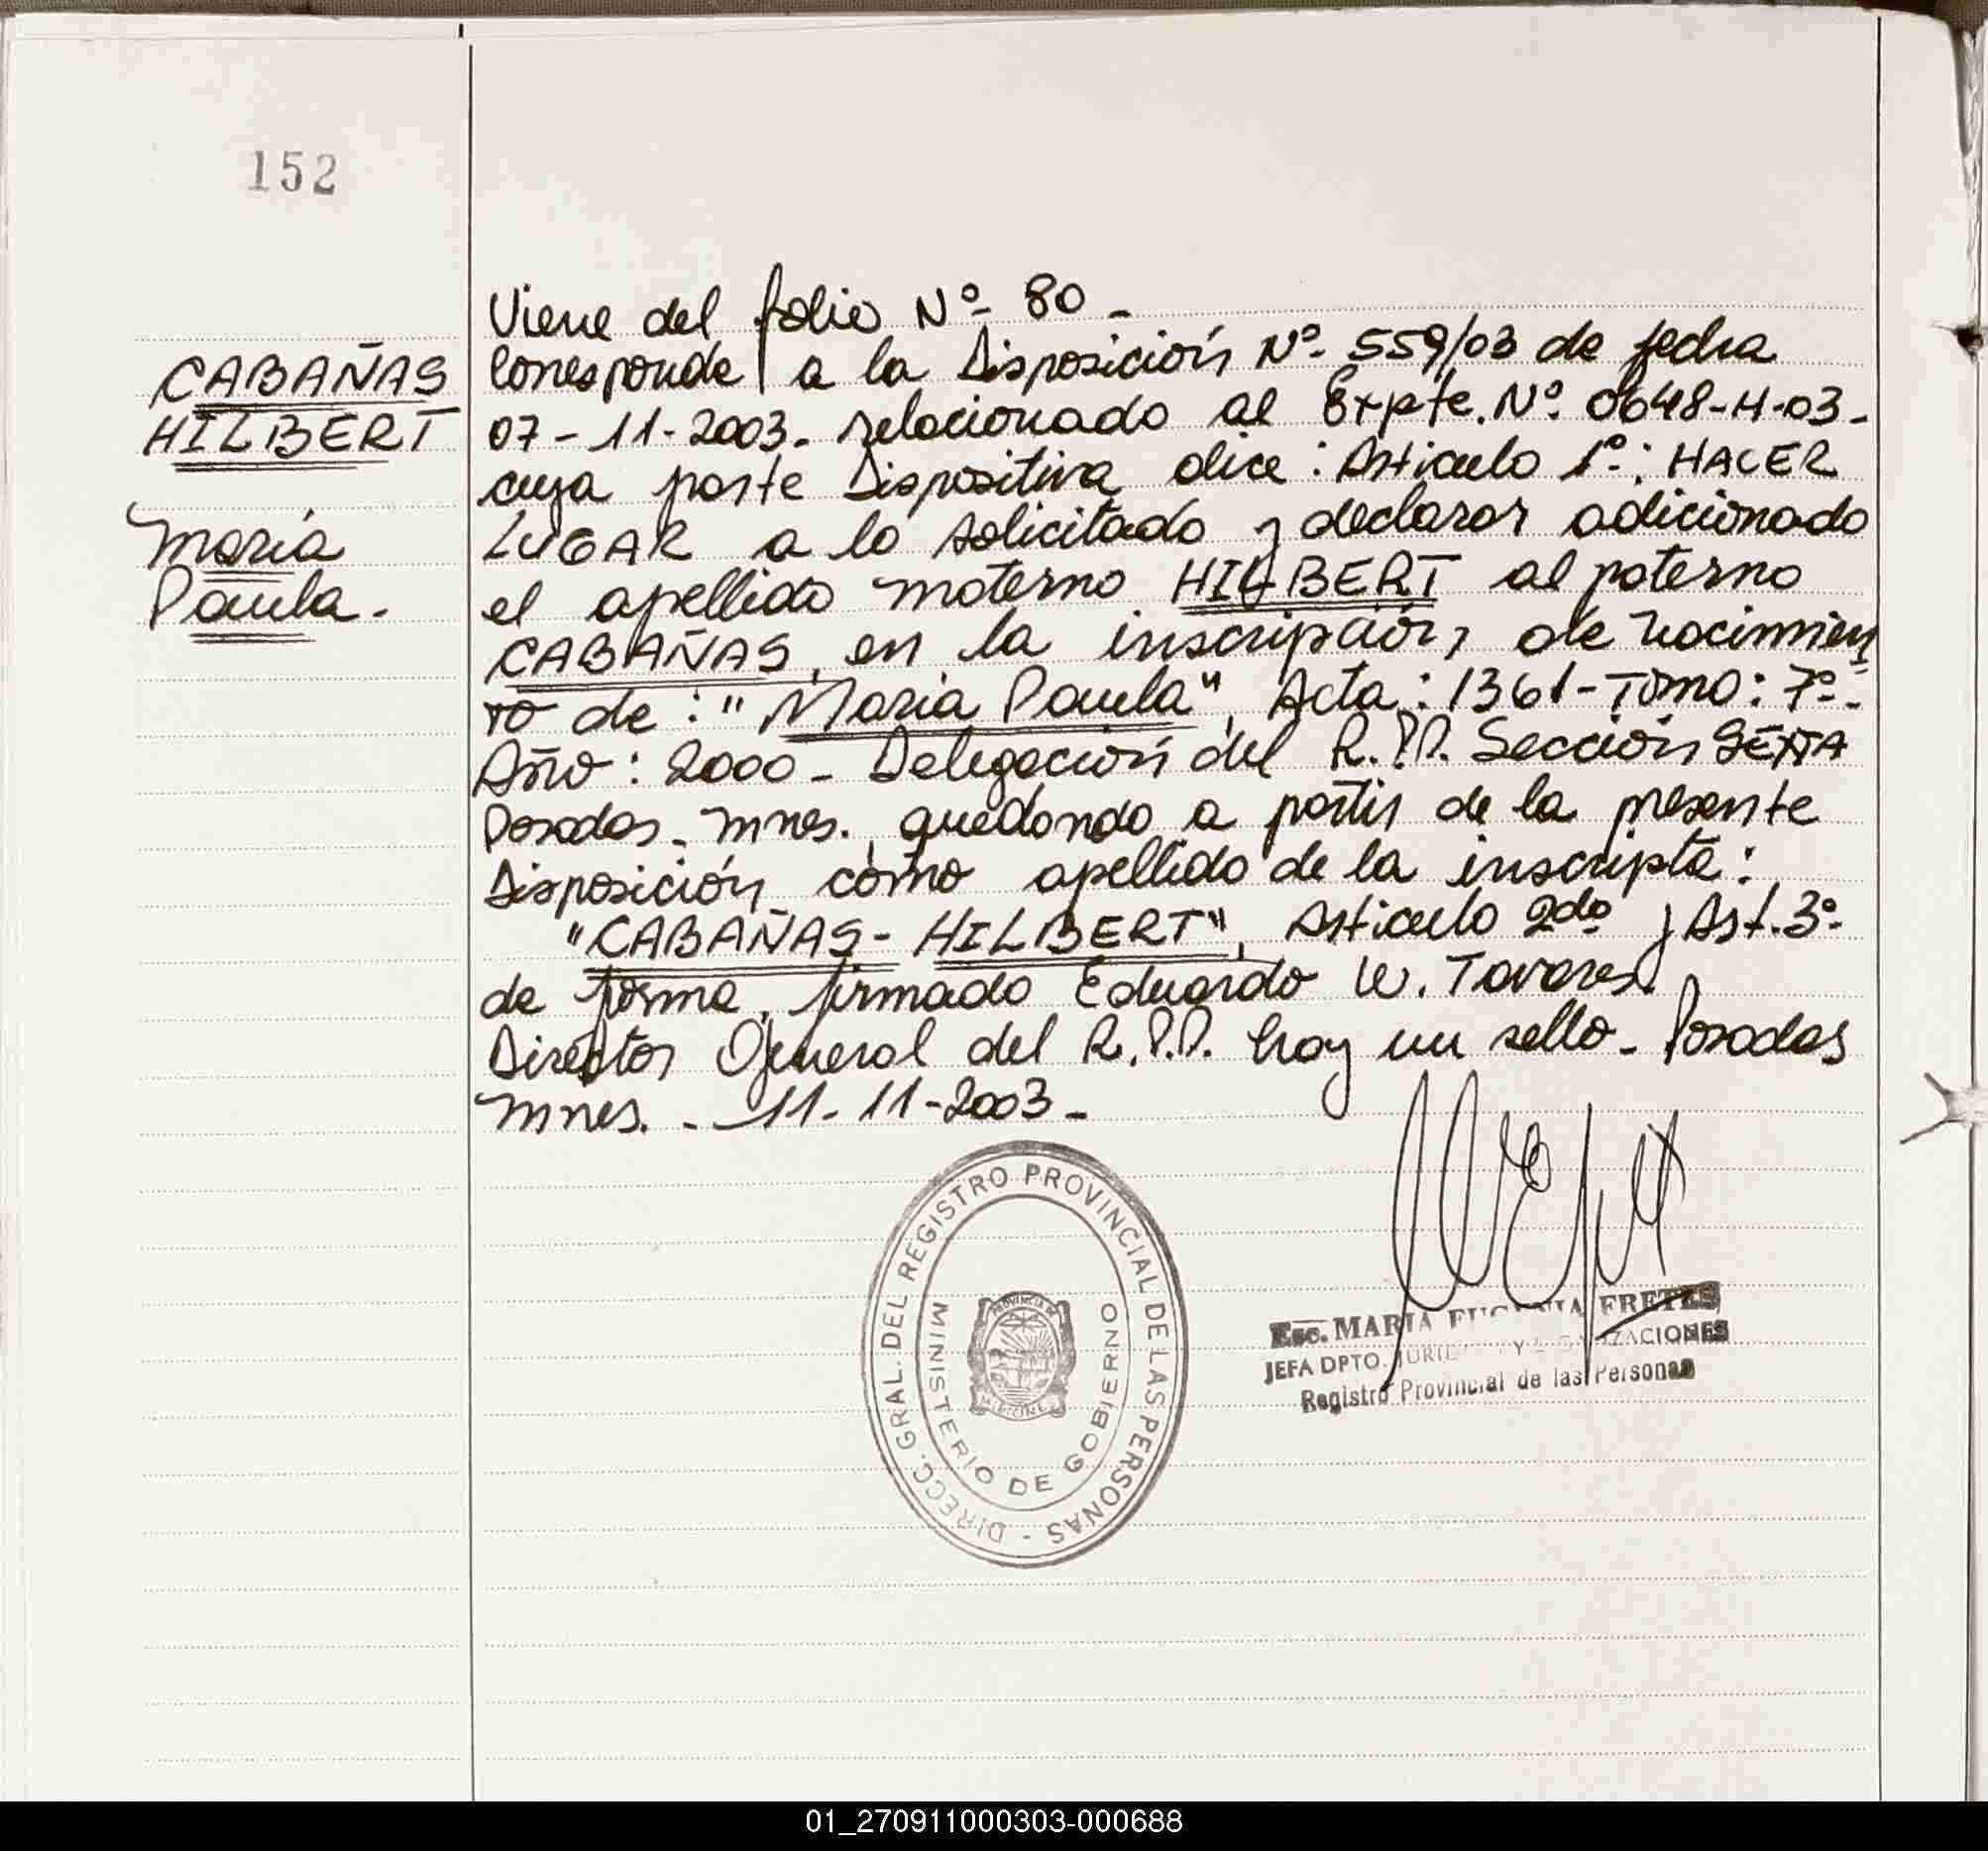 152
CABAÑAS
HILBERT
María
Paula.
Viene del folio Nº 80 -
Corresponde a la Disposición Nº 559/03 de fecha
07-11-2003. relacionado al Expte. Nº 0648-H-03-
cuya parte Dispositiva dice: Articulo 1º: HACER
LUGAR a lo solicitado y declarar adicionado
el apellido materno HILBERT al paterno
CABAÑAS, en la inscripción de nacimien
to de: "Maria Paula", Acta: 1361-Tomo: 7º-
Año: 2000 - Delegación del R.P.P. Sección SEXTA
Posadas. Mnes. quedando a partir de la presente
Disposición como apellido de la inscripta:
"CABAÑAS-HILBERT", Articulo 2do y Art. 3º
de forma, firmado Eduardo W. Tavares
Director General del R.P.P. hay un sello - Posadas
Mnes. - 11-11-2003 -
DIRECC. GRAL. DEL REGISTRO PROVINCIAL DE LAS PERSONAS -
MINISTERIO DE GOBIERNO
PROVINCIA DE
MISIONES
Esc. MARIA EUGENIA FRETES
JEFA DPTO. Y
Registro Provincial de las Personas
01_270911000303-000688